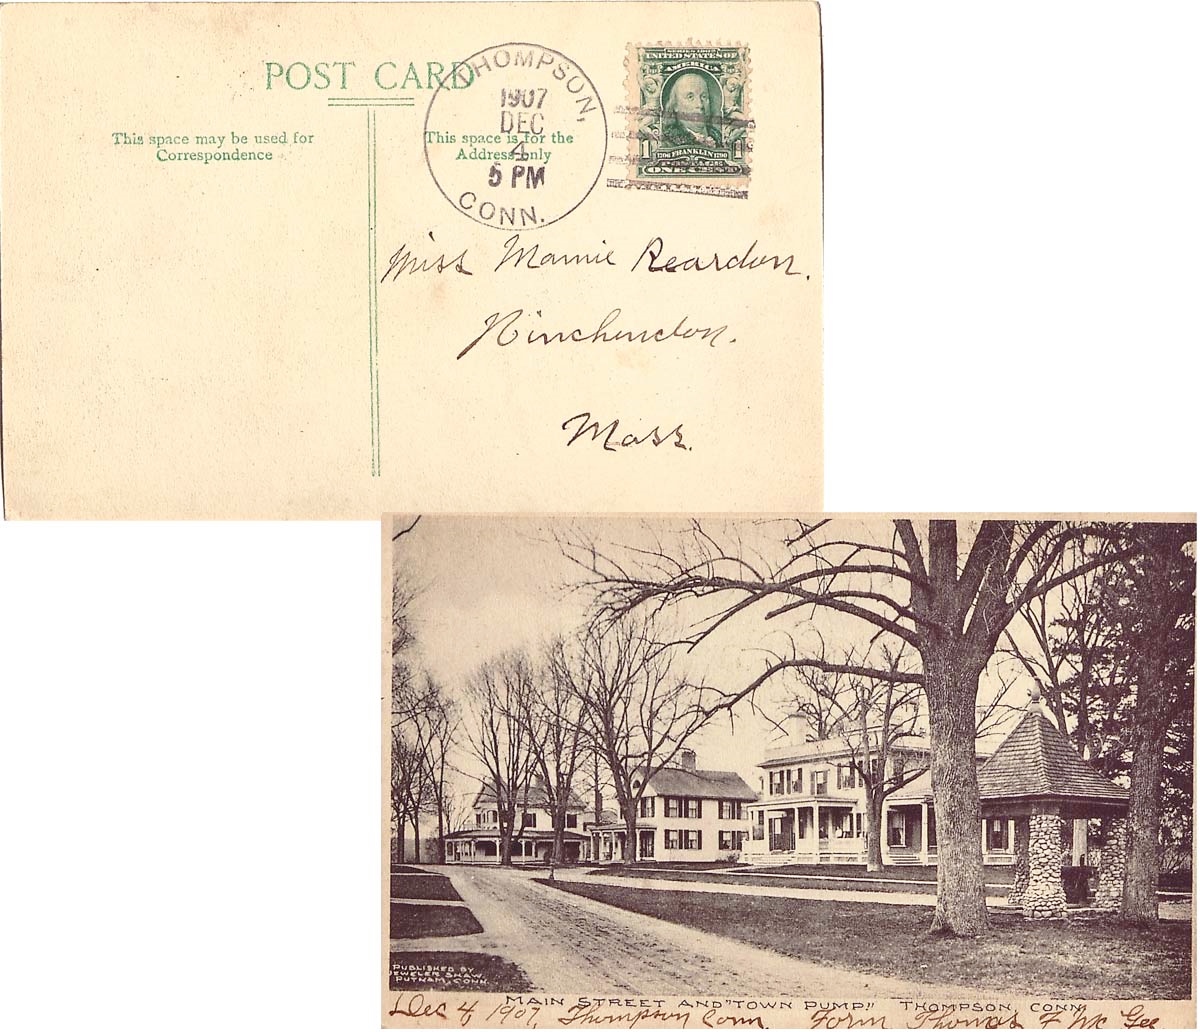 POST CARD
This space may be used for
Correspondence
This space is for the
Address only
THOMPSON,
1907
DEC
4
5 PM
CONN.
SERIES 1902
UNITED STATES OF
AMERICA
1 1706 FRANKLIN 1790 1
POSTAGE
ONE CENT
Miss Mamie Reardon.
Winchendon.
Mass.
PUBLISHED BY
JEWELER SHAW,
PUTNAM, CONN.
MAIN STREET AND "TOWN PUMP." THOMPSON, CONN.
Dec 4 1907, Thompson Conn. Form Thomas